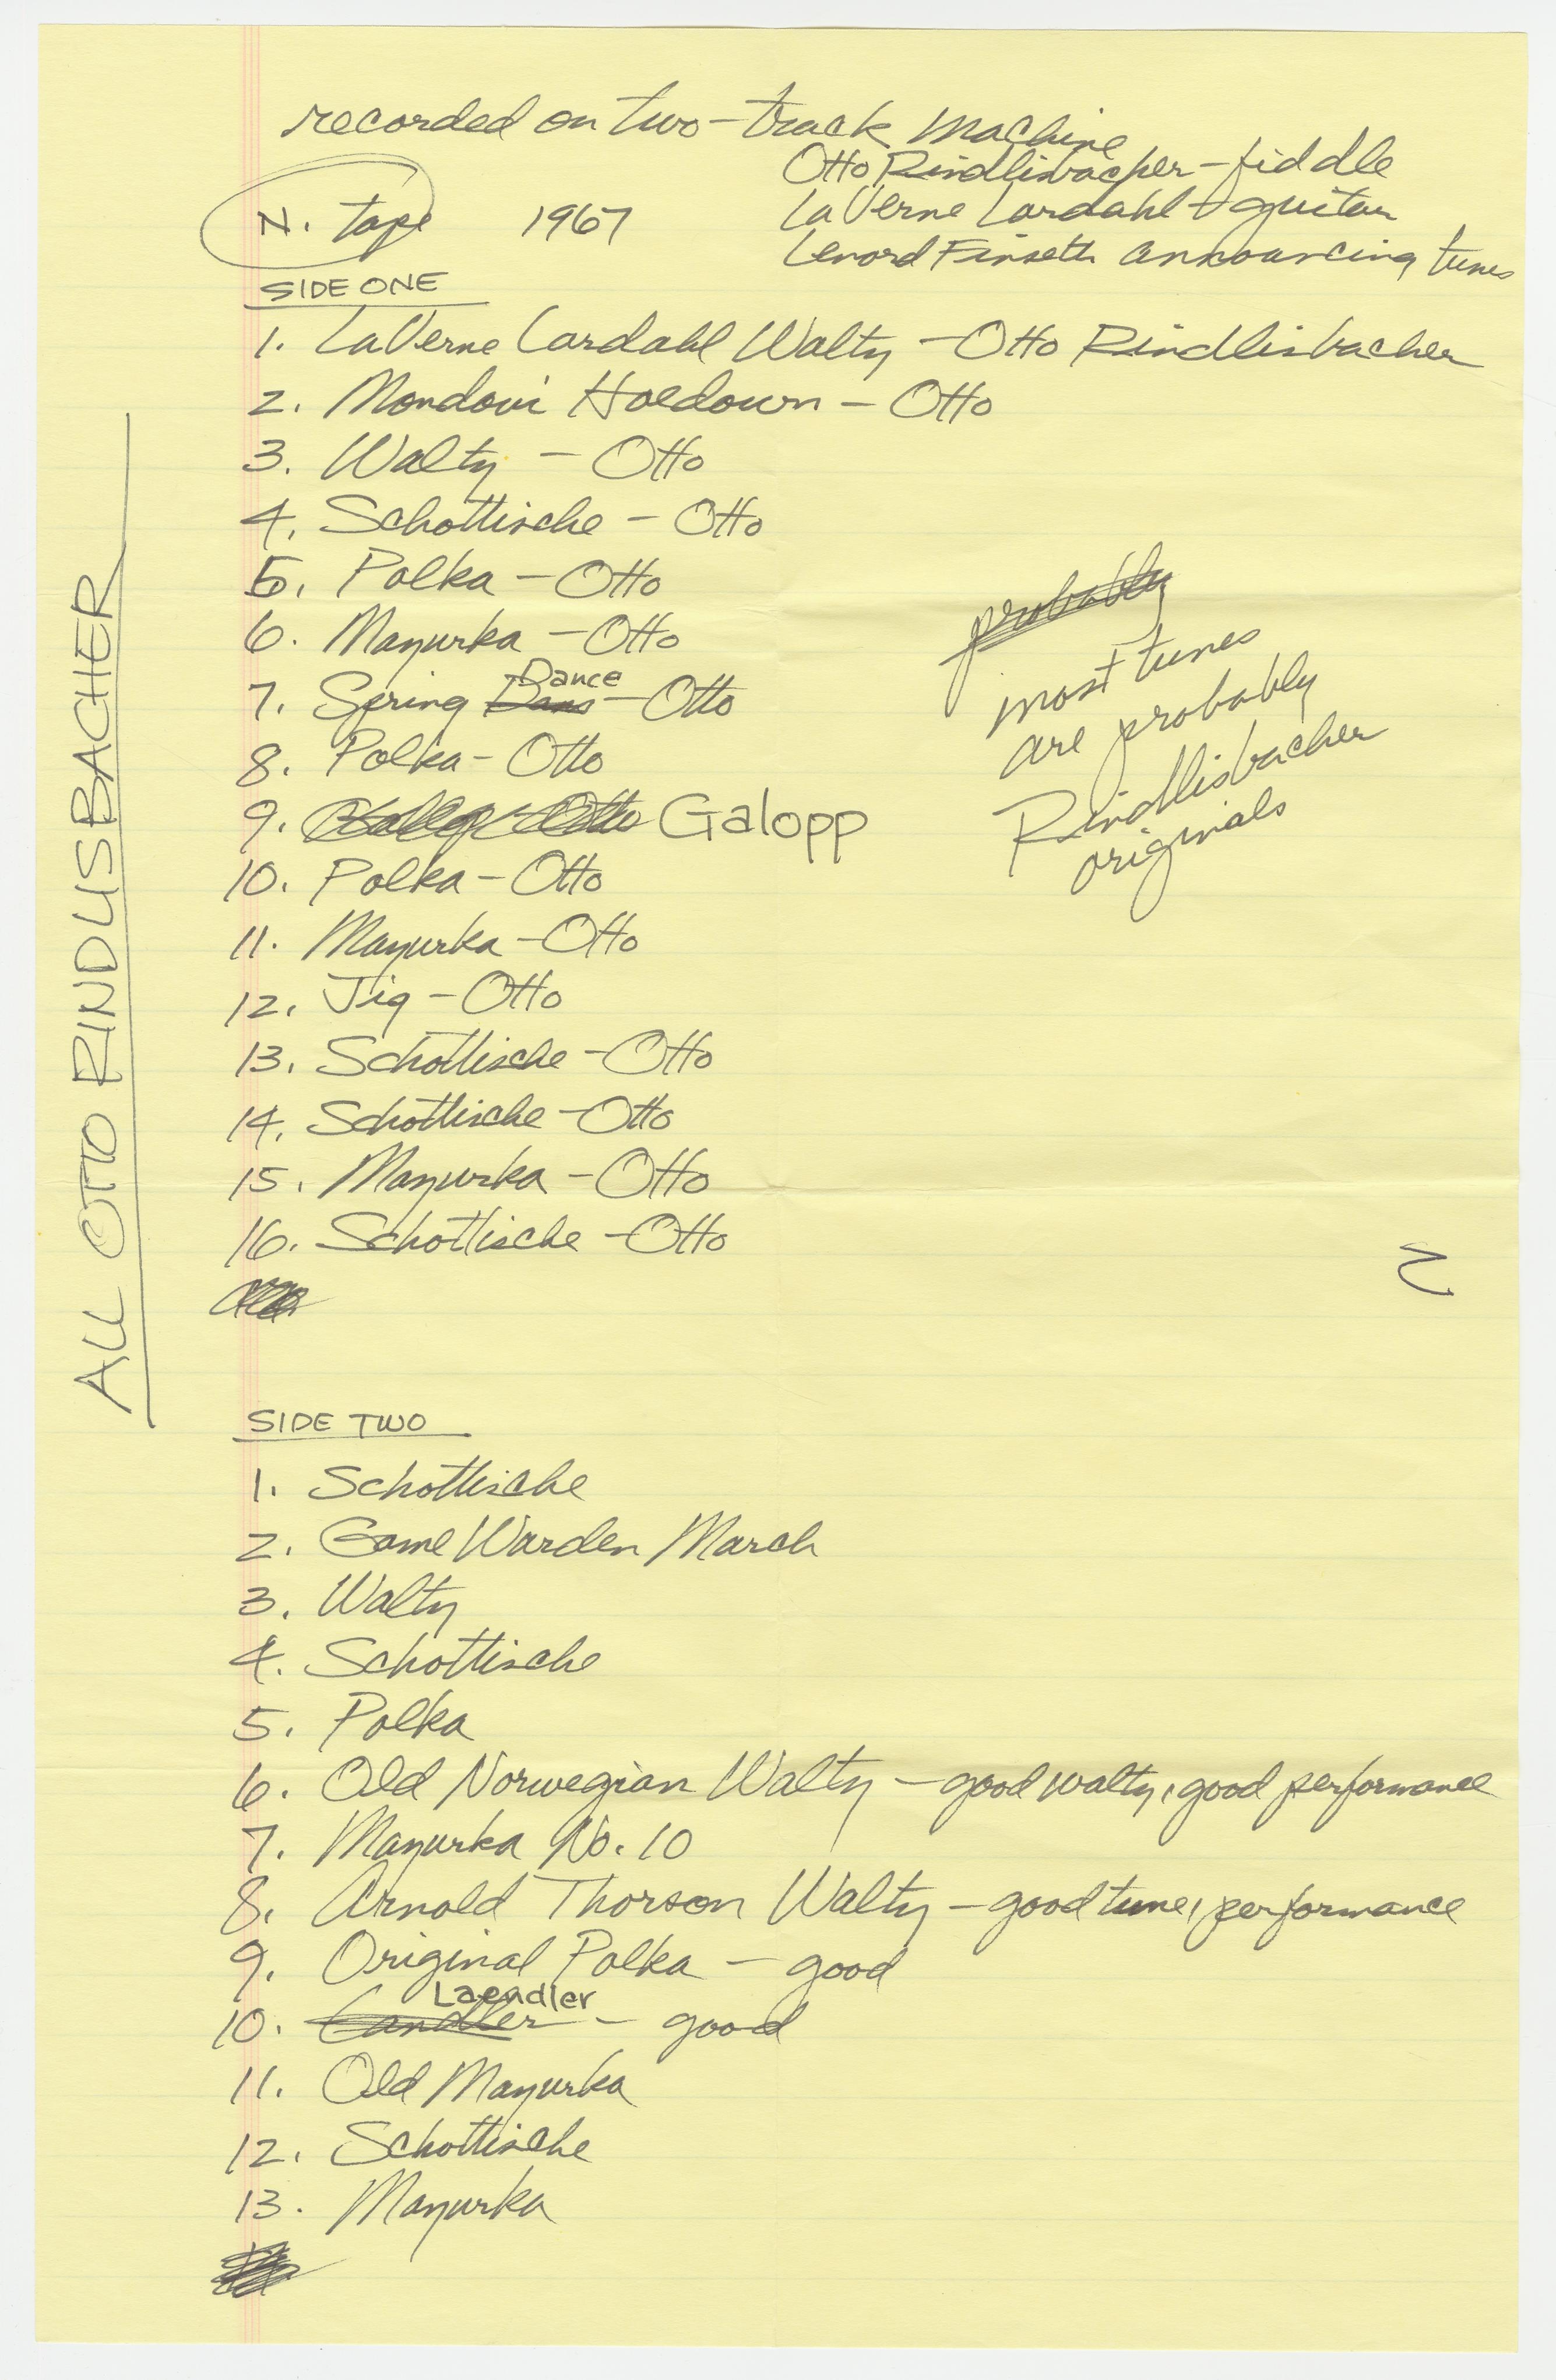 recorded on two-track machine
Otto Rindlisbacher - fiddle
N. tape 1967 LaVerne Lardahl - guitar
Lenord Finseth announcing tunes
SIDE ONE
1. LaVerne Lardahl Waltz - Otto Rindlisbacher
2. Mondovi Hoedown - Otto
3. Waltz - Otto
4. Schottische - Otto
5. Polka - Otto
6. Mazurka - Otto
7. Spring Dans Dance - Otto
8. Polka - Otto
9. Galopp
10. Polka - Otto
11. Mazurka - Otto
12. Jig - Otto
13. Schottische - Otto
14. Schottische - Otto
15. Mazurka - Otto
16. Schottische - Otto
probably
most tunes
are probably
Rindlisbacher
originals
ALL OTTO RINDLISBACHER
SIDE TWO
1. Schottische
2. Game Warden March
3. Waltz
4. Schottische
5. Polka
6. Old Norwegian Waltz - good waltz, good performance
7. Mazurka No. 10
8. Arnold Thorson Waltz - good tune, performance
9. Original Polka - good
Laendler
10. Landler - good
11. Old Mazurka
12. Schottische
13. Mazurka